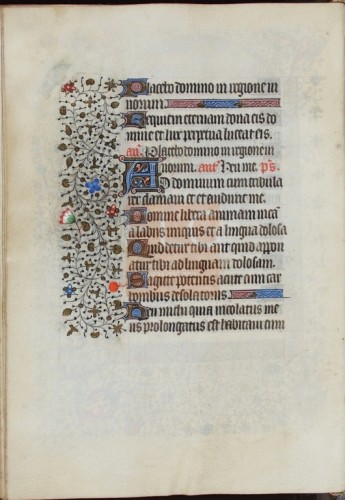 Placebo domino in regione vi
uorum.
Requiem eternam dona eis do
mine et lux perpetua luceat eis.
an. Placebo domino in regione vi
uorum. ant. Heu me. ps.
Ad dominum cum tribula
rer clamaui et exaudiuit me.
Domine libera animam mea
a labiis iniquis et a lingua dolosa
Quid detur tibi aut quid appon
atur tibi ad linguam dolosam.
Sagitte potentis acute cum car
bonibus desolatoriis
Heu michi quia incolatus me
us prolongatus est habitaui cum